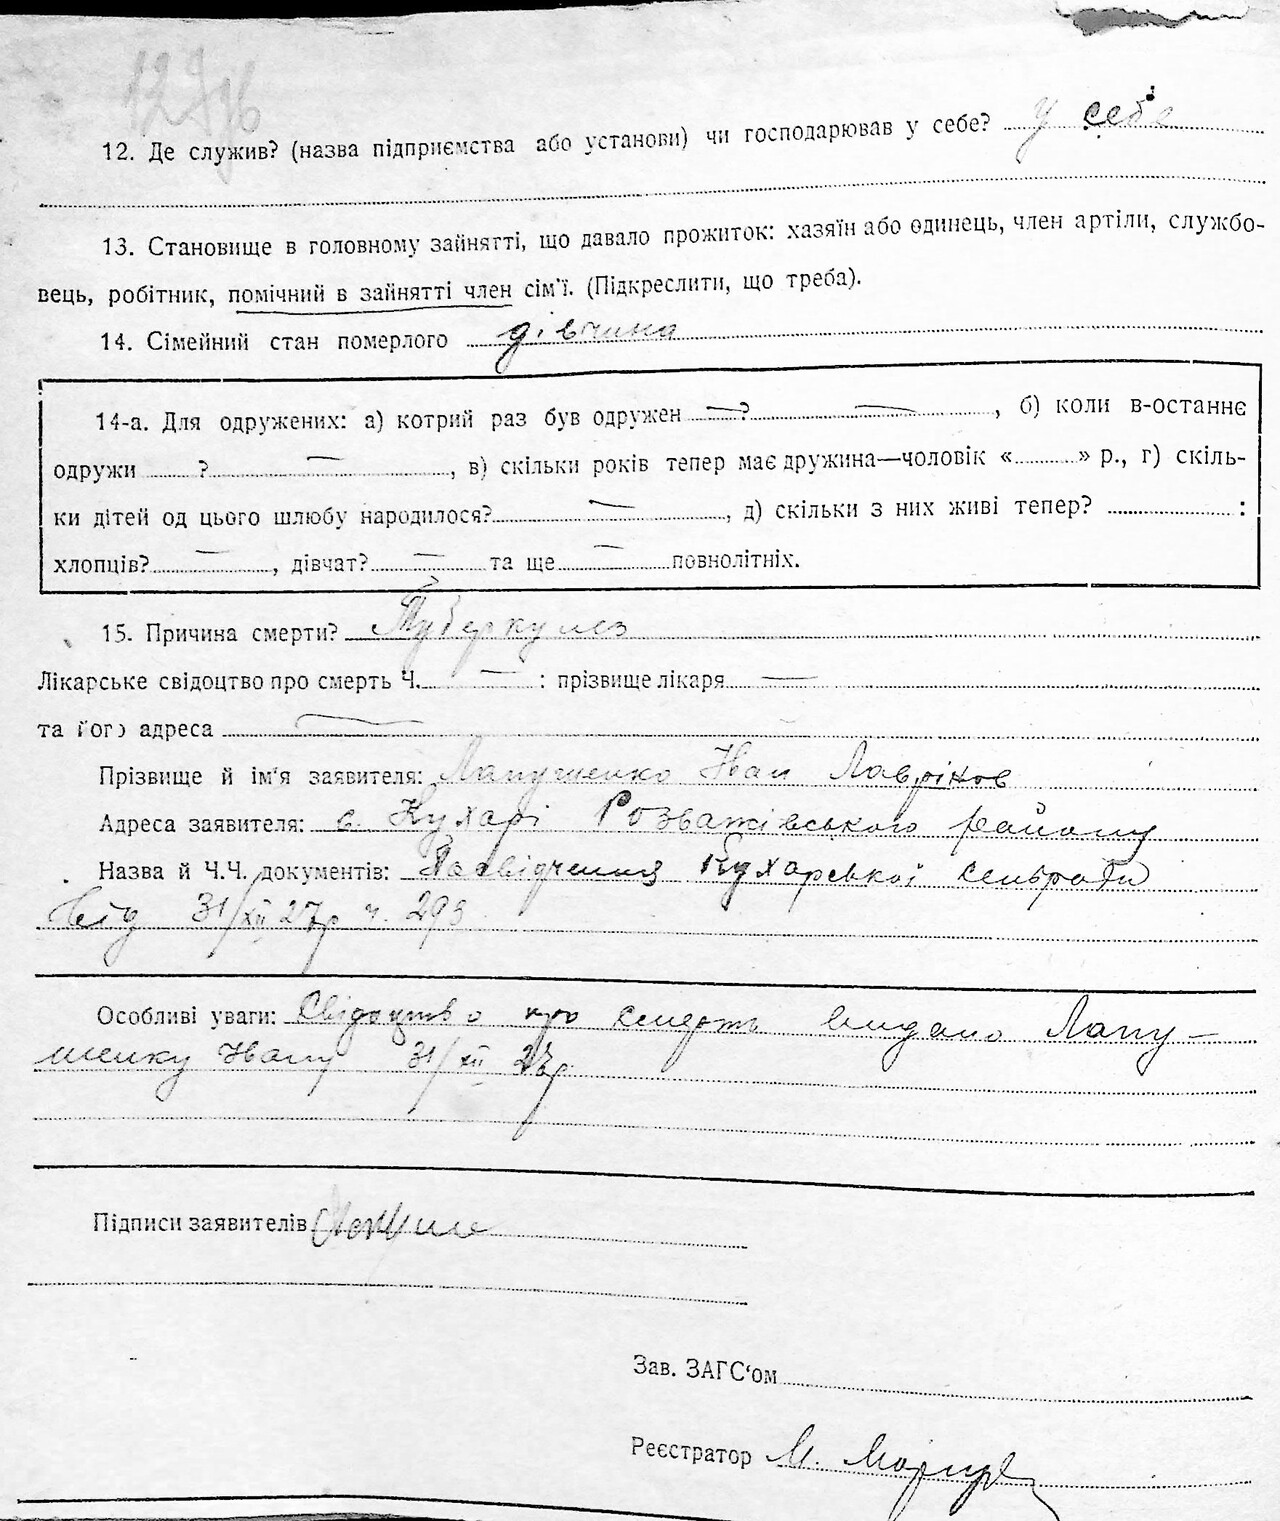 12. Де служив? (назва підприємства або установи) чи господарював у себе? у себе
13. Становище в головному зайнятті, що давало прожиток: хазяїн або одинець, член артіли, службо-
вець, робітник, помічний в зайнятті член сім'ї. (Підкреслити, що треба).
14. Сімейний стан померлого дівчина
14-а. Для одружених: а) котрий раз був одружен —? —, б) коли в-останнє
одружи ? —, в) скільки років тепер має дружина—чоловік « » р., г) скіль-
ки дітей од цього шлюбу народилося? —, д) скільки з них живі тепер? :
хлопців? —, дівчат? — та ще — повнолітніх.
15. Причина смерти? Туберкульоз
Лікарське свідоцтво про смерть Ч. — : прізвище лікаря —
та його адреса —
Прізвище й ім'я заявителя: Лапушенко Іван Лавріков
Адреса заявителя: с. Кухарі Розважівського району
Назва й Ч.Ч. документів: Посвідчення Кухарської сельради
від 31/XII 27р ч. 293
Особливі уваги: Свідоцтво про смерть видано Лапу-
шенку Івану 31/XII 27р.
Підписи заявителів
Зав. ЗАГС'ом
Реєстратор М.